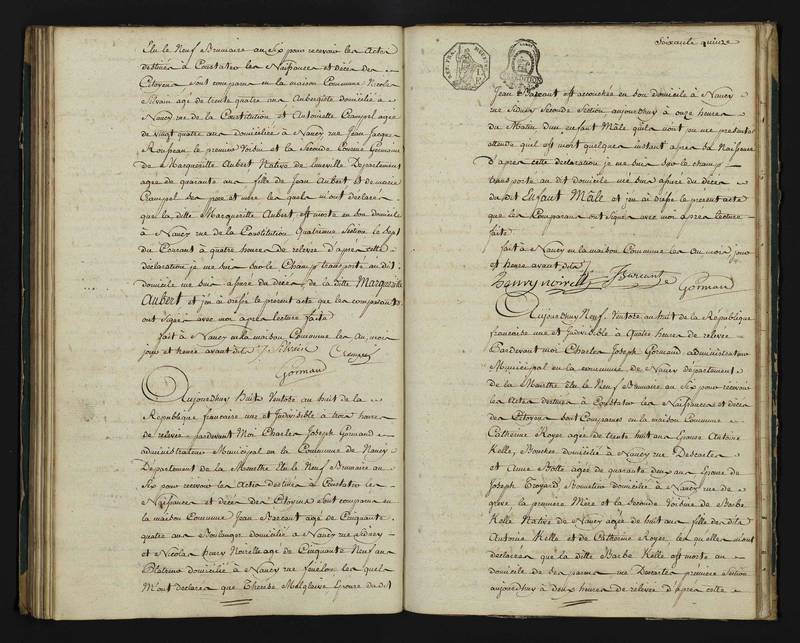 Elu le Neuf Brumaire an Six pour recevoir les Actes
destinés à Constater les Naissances et Décès des
Citoyens sont comparus en la maison Commune Nicolas
agé de trente quatre ans Aubergiste domicilié à
Nancy rue de la Constitution et Antoinette Crampel agée
de vingt quatre ans domiciliée à Nancy rue Jean Jacques
Rousseau le premier Voisin et la Seconde Cousine Germaine
de Marguerite Aubert Native de Luneville Département
agée de quarante ans fille de Jean Aubert et de marie
Crampel ses pere et mere les quels m'ont déclaré
que la ditte Marguerite Aubert est morte en son domicile
à Nancy rue de la Constitution Quatrieme Section le Sept
du Courant à quatre heures de relevée d'après cette
déclaration je me suis sur le Champ transporté au dit
domicile me suis assuré du décès de la ditte Marguerite
Aubert et j'en ai dressé le present acte que les comparants
ont signés avec moi après lecture faite
fait à Nancy en la maison Commune les An, mois
jour et heure avant dits
Gormand
Aujourdhuy Huit Ventose an huit de la
République française une et Indivisible à trois heures
de relevée pardevant Moi Charles Joseph Gormand
administrateur Municipal en la Commune de Nancy
Département de la Meurthe Elu le Neuf Brumaire an
Six pour recevoir les Actes destinés à Constater les
Naissances et décès des Citoyens sont comparus en
la maison Commune Jean Barcant agé de Cinquante
quatre ans Boulanger domicilié à Nancy rue Sidney
et Nicolas henry Noirelle agé de Cinquante Neuf ans
Platrier domicilié à Nancy rue fénélon les quels
M'ont déclarés que Therese Epouse du dit
Soixante quinze
Jean Barcant est accouchée en son domicile à Nancy
rue Sidney Seconde Section aujourdhuy à onze heures
du Matin d'un enfant Mâle qu'ils n'ont pu me presenter
attendu quil est mort quelques instant après sa Naissance
d'après cette déclaration je me suis sur le champ
transporté au dit domicile me suis assuré du décès
du dit Enfant Mâle et j'en ai dressé le present acte
que les Comparans ont signés avec moi après lecture
faite
fait à Nancy en la maison Commune les an mois jour
et heure avant dits
henry noirelle J Barcant
Gormand
Aujourdhuy Neuf Ventose an huit de la République
française une et Indivisible à Quatre heures de relevée
Pardevant moi Charles Joseph Gormand administrateur
Municipal en la commune de Nancy département
de la Meurthe Elu le Neuf Brumaire an Six pour recevoir
les Actes destinés à Constater les Naissances et décès
des Citoyens sont Comparues en la maison Commune
Catherine Royer agée de trente huit ans Epouse Antoine
Kelle, domiciliée à Nancy rue Descartes
et Anne Botte agée de quarante deux ans Epouse de
Joseph domiciliée à Nancy rue de
grève la première Mere et la Seconde Voisine de Barbe
Kelle Native de Nancy agée de huit ans fille des dits
Antoine Kelle et de Catherine Royer les quelles m'ont
déclarées que la ditte Barbe Kelle est morte au
domicile de ses parens rue Descartes première Section
aujourdhuy à deux heures de relevée d'après cette